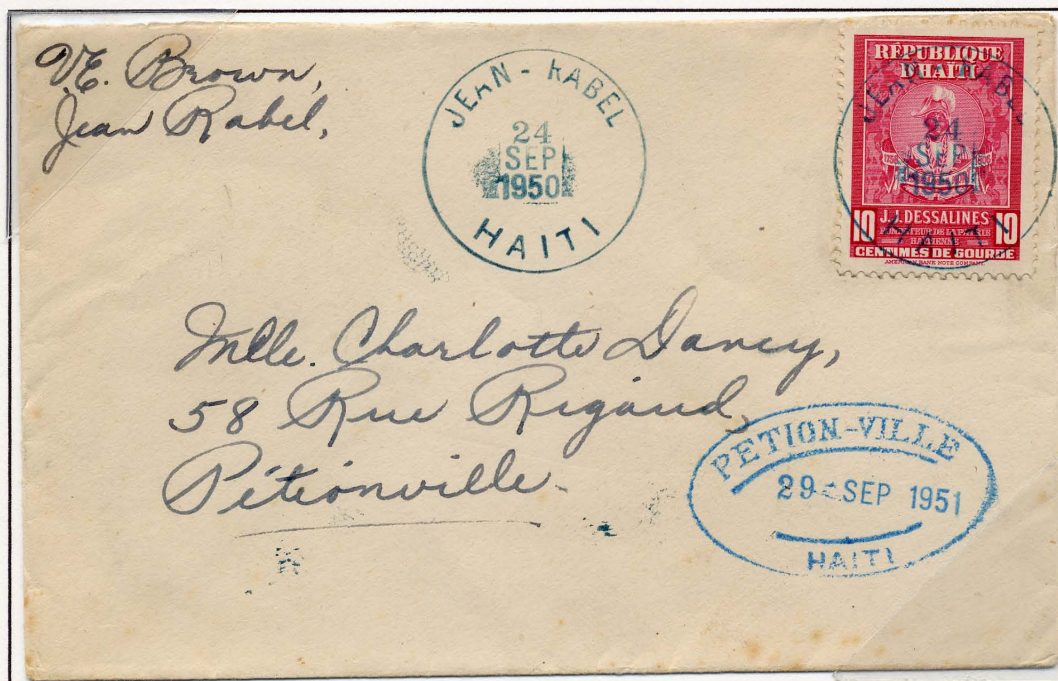 V.E. Brown,
Jean Rabel,
JEAN-RABEL
24
SEP
1950
HAITI
RÉPUBLIQUE
D'HAÏTI
JEAN-RABEL
24
SEP
1950
HAITI
10 J.J.DESSALINES 10
FONDATEUR DE LA PATRIE
HAITIENNE
CENTIMES DE GOURDE
AMERICAN BANK NOTE COMPANY
Mlle. Charlotte Dancy,
58 Rue Rigaud,
Pétionville.
PETION-VILLE
29 SEP 1951
HAITI